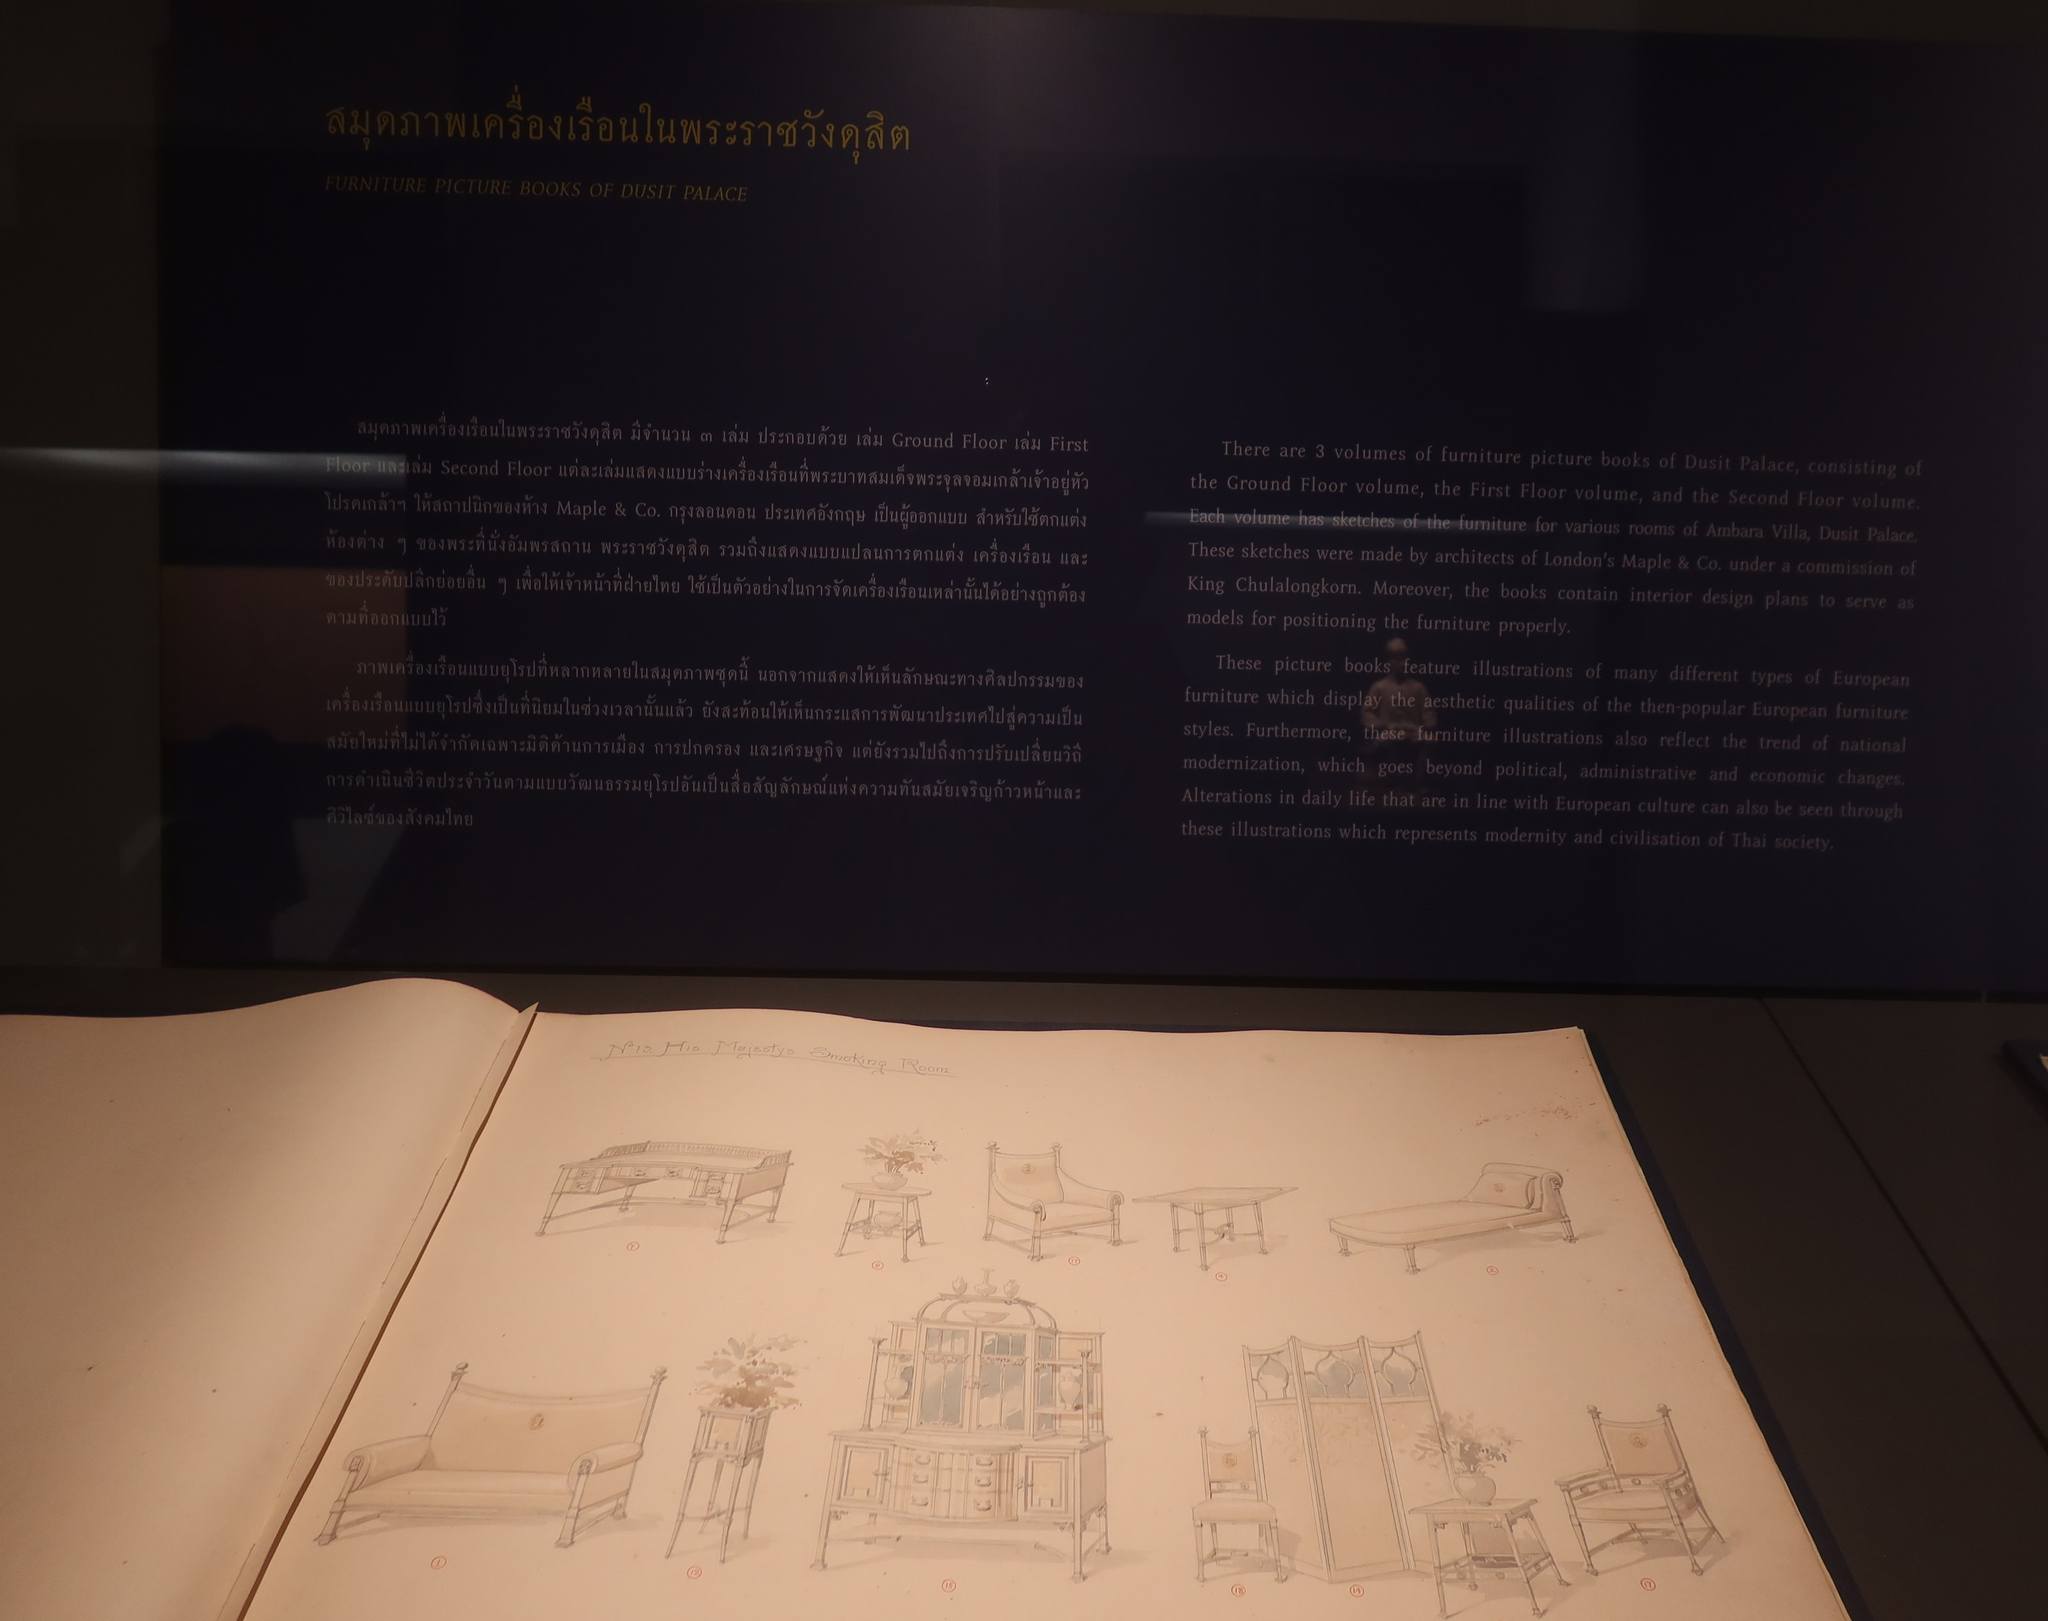 สมุดภาพเครื่องเรือนในพระราชวังดุสิต
FURNITURE PICTURE BOOKS OF DUSIT PALACE
สมุดภาพเครื่องเรือนในพระราชวังดุสิต มีจำนวน ๓ เล่ม ประกอบด้วย เล่ม Ground Floor เล่ม First
Floor และเล่ม Second Floor แต่ละเล่มแสดงแบบร่างเครื่องเรือนที่พระบาทสมเด็จพระจุลจอมเกล้าเจ้าอยู่หัว
โปรดเกล้าฯ ให้สถาปนิกของห้าง Maple & Co. กรุงลอนดอน ประเทศอังกฤษ เป็นผู้ออกแบบ สำหรับใช้ตกแต่ง
ห้องต่าง ๆ ของพระที่นั่งอัมพรสถาน พระราชวังดุสิต รวมถึงแสดงแบบแปลนการตกแต่ง เครื่องเรือน และ
ของประดับปลีกย่อยอื่น ๆ เพื่อให้เจ้าหน้าที่ฝ่ายไทย ใช้เป็นตัวอย่างในการจัดเครื่องเรือนเหล่านั้นได้อย่างถูกต้อง
ตามที่ออกแบบไว้
ภาพเครื่องเรือนแบบยุโรปที่หลากหลายในสมุดภาพชุดนี้ นอกจากแสดงให้เห็นลักษณะทางศิลปกรรมของ
เครื่องเรือนแบบยุโรปซึ่งเป็นที่นิยมในช่วงเวลานั้นแล้ว ยังสะท้อนให้เห็นกระแสการพัฒนาประเทศไปสู่ความเป็น
สมัยใหม่ที่ไม่ได้จำกัดเฉพาะมิติด้านการเมือง การปกครอง และเศรษฐกิจ แต่ยังรวมไปถึงการปรับเปลี่ยนวิถี
การดำเนินชีวิตประจำวันตามแบบวัฒนธรรมยุโรปอันเป็นสื่อสัญลักษณ์แห่งความทันสมัยเจริญก้าวหน้าและ
ศิวิไลซ์ของสังคมไทย
There are 3 volumes of furniture picture books of Dusit Palace, consisting of
the Ground Floor volume, the First Floor volume, and the Second Floor volume.
Each volume has sketches of the furniture for various rooms of Ambara Villa, Dusit Palace.
These sketches were made by architects of London's Maple & Co. under a commission of
King Chulalongkorn. Moreover, the books contain interior design plans to serve as
models for positioning the furniture properly.
These picture books feature illustrations of many different types of European
furniture which display the aesthetic qualities of the then-popular European furniture
styles. Furthermore, these furniture illustrations also reflect the trend of national
modernization, which goes beyond political, administrative and economic changes.
Alterations in daily life that are in line with European culture can also be seen through
these illustrations which represents modernity and civilisation of Thai society.
His Majestys Smoking Room